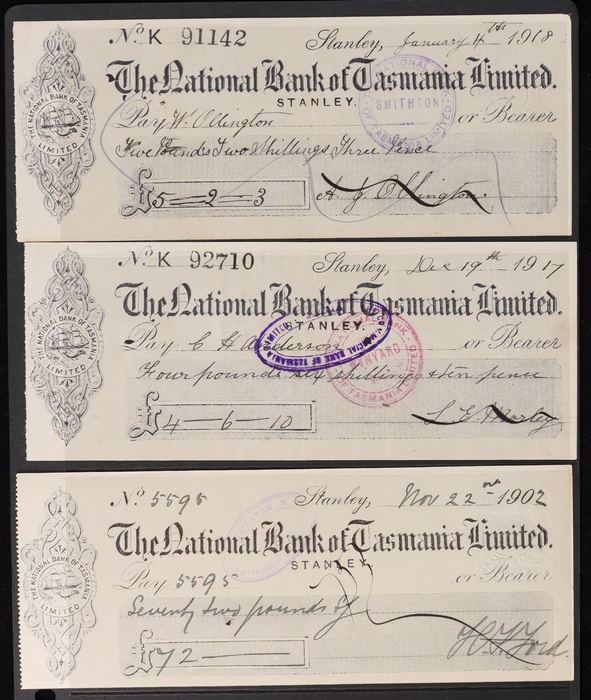 No. K 91142 Stanley, January 4th 1918
The National Bank of Tasmania Limited.
STANLEY.
SMITHTON
Pay W. Ollington or Bearer
Five Pounds Two Shillings Three Pence
£5—2—3 A. J. Ollington.
THE NATIONAL BANK OF TASMANIA LIMITED
No. K 92710 Stanley, Dec 19th 1917
The National Bank of Tasmania Limited.
STANLEY.
COMMERCIAL BANK OF TASMANIA LIMITED
Pay C H Anderson or Bearer
WYNYARD
OF TASMANIA LIMITED
Four pounds six shillings & ten pence
£4—6—10
THE NATIONAL BANK OF TASMANIA LIMITED
No. 5595 Stanley, Nov 22nd 1902
The National Bank of Tasmania Limited.
STANLEY.
Pay 5595 or Bearer
Seventy two pounds
£72
THE NATIONAL BANK OF TASMANIA LIMITED